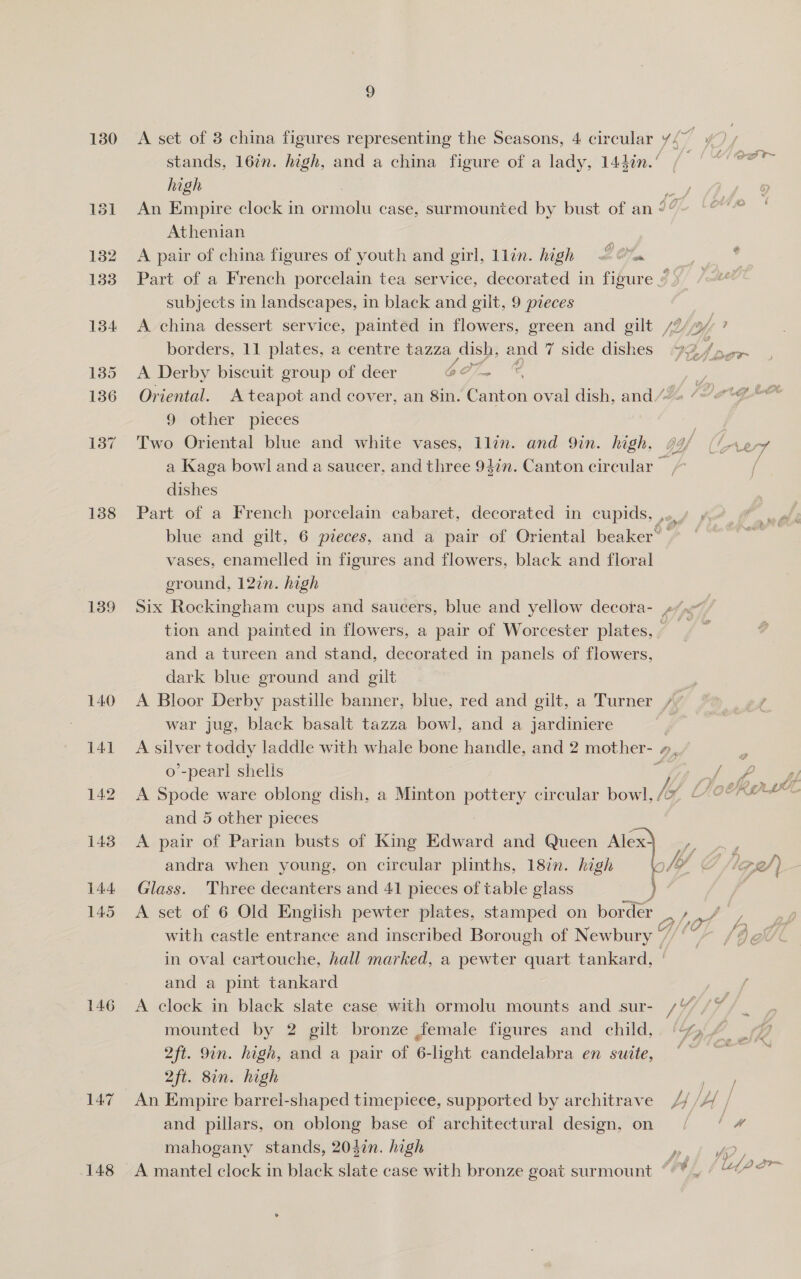 9
130 A set of 3 china figures representing the Seasons, 4 circular
stands, 16in. high, and a china figure of a lady, 14½in.
high
131 An Empire clock in ormolu case, surmounted by bust of an
Athenian
132 A pair of china figures of youth and girl, 11in. high
133 Part of a French porcelain tea service, decorated in figure
subjects in landscapes, in black and gilt, 9 pieces
134 A china dessert service, painted in flowers, green and gilt
borders, 11 plates, a centre tazza dish, and 7 side dishes
135 A Derby biscuit group of deer
136 Oriental. A teapot and cover, an 8in. Canton oval dish, and
9 other pieces
137 Two Oriental blue and white vases, 11in. and 9in. high,
a Kaga bowl and a saucer, and three 9½in. Canton circular
dishes
138 Part of a French porcelain cabaret, decorated in cupids,
blue and gilt, 6 pieces, and a pair of Oriental beaker
vases, enamelled in figures and flowers, black and floral
ground, 12in. high
139 Six Rockingham cups and saucers, blue and yellow decora-
tion and painted in flowers, a pair of Worcester plates,
and a tureen and stand, decorated in panels of flowers,
dark blue ground and gilt
140 A Bloor Derby pastille banner, blue, red and gilt, a Turner
war jug, black basalt tazza bowl, and a jardiniere
141 A silver toddy laddle with whale bone handle, and 2 mother-
o'-pearl shells
142 A Spode ware oblong dish, a Minton pottery circular bowl,
and 5 other pieces
143 A pair of Parian busts of King Edward and Queen Alex-
andra when young, on circular plinths, 18in. high
144 Glass. Three decanters and 41 pieces of table glass
145 A set of 6 Old English pewter plates, stamped on border
with castle entrance and inscribed Borough of Newbury
in oval cartouche, hall marked, a pewter quart tankard,
and a pint tankard
146 A clock in black slate case with ormolu mounts and sur-
mounted by 2 gilt bronze female figures and child,
2ft. 9in. high, and a pair of 6-light candelabra en suite,
2ft. 8in. high
147 An Empire barrel-shaped timepiece, supported by architrave
and pillars, on oblong base of architectural design, on
mahogany stands, 20½in. high
148 A mantel clock in black slate case with bronze goat surmount